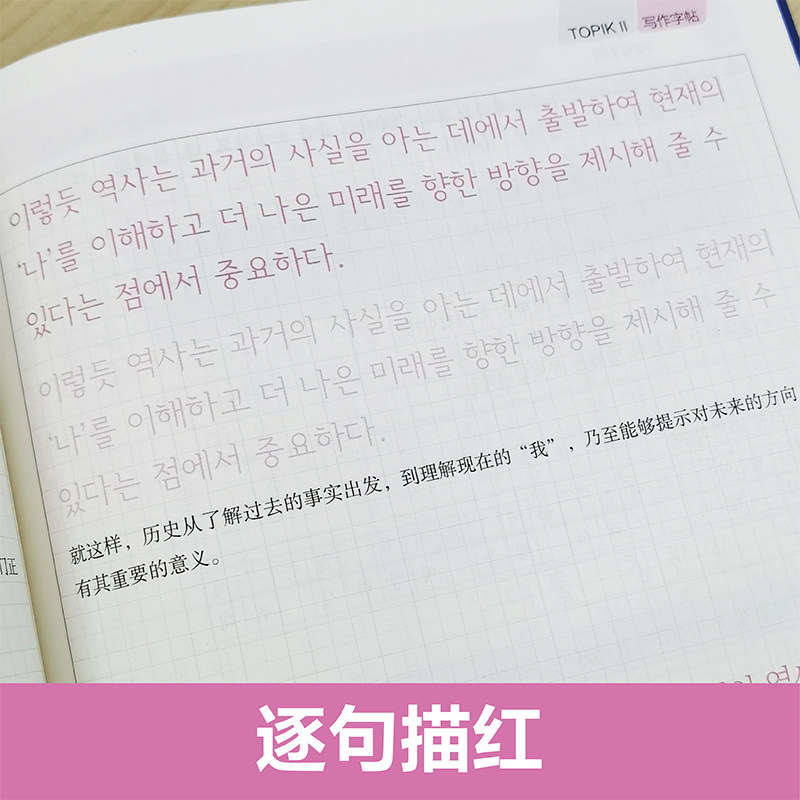 TOPIK II 写作字帖
이렇듯 역사는 과거의 사실을 아는 데에서 출발하여 현재의
‘나’를 이해하고 더 나은 미래를 향한 방향을 제시해 줄 수
있다는 점에서 중요하다.
이렇듯 역사는 과거의 사실을 아는 데에서 출발하여 현재의
‘나’를 이해하고 더 나은 미래를 향한 방향을 제시해 줄 수
있다는 점에서 중요하다.
就这样，历史从了解过去的事实出发，到理解现在的“我”，乃至能够提示对未来的方向
有其重要的意义。
逐句描红